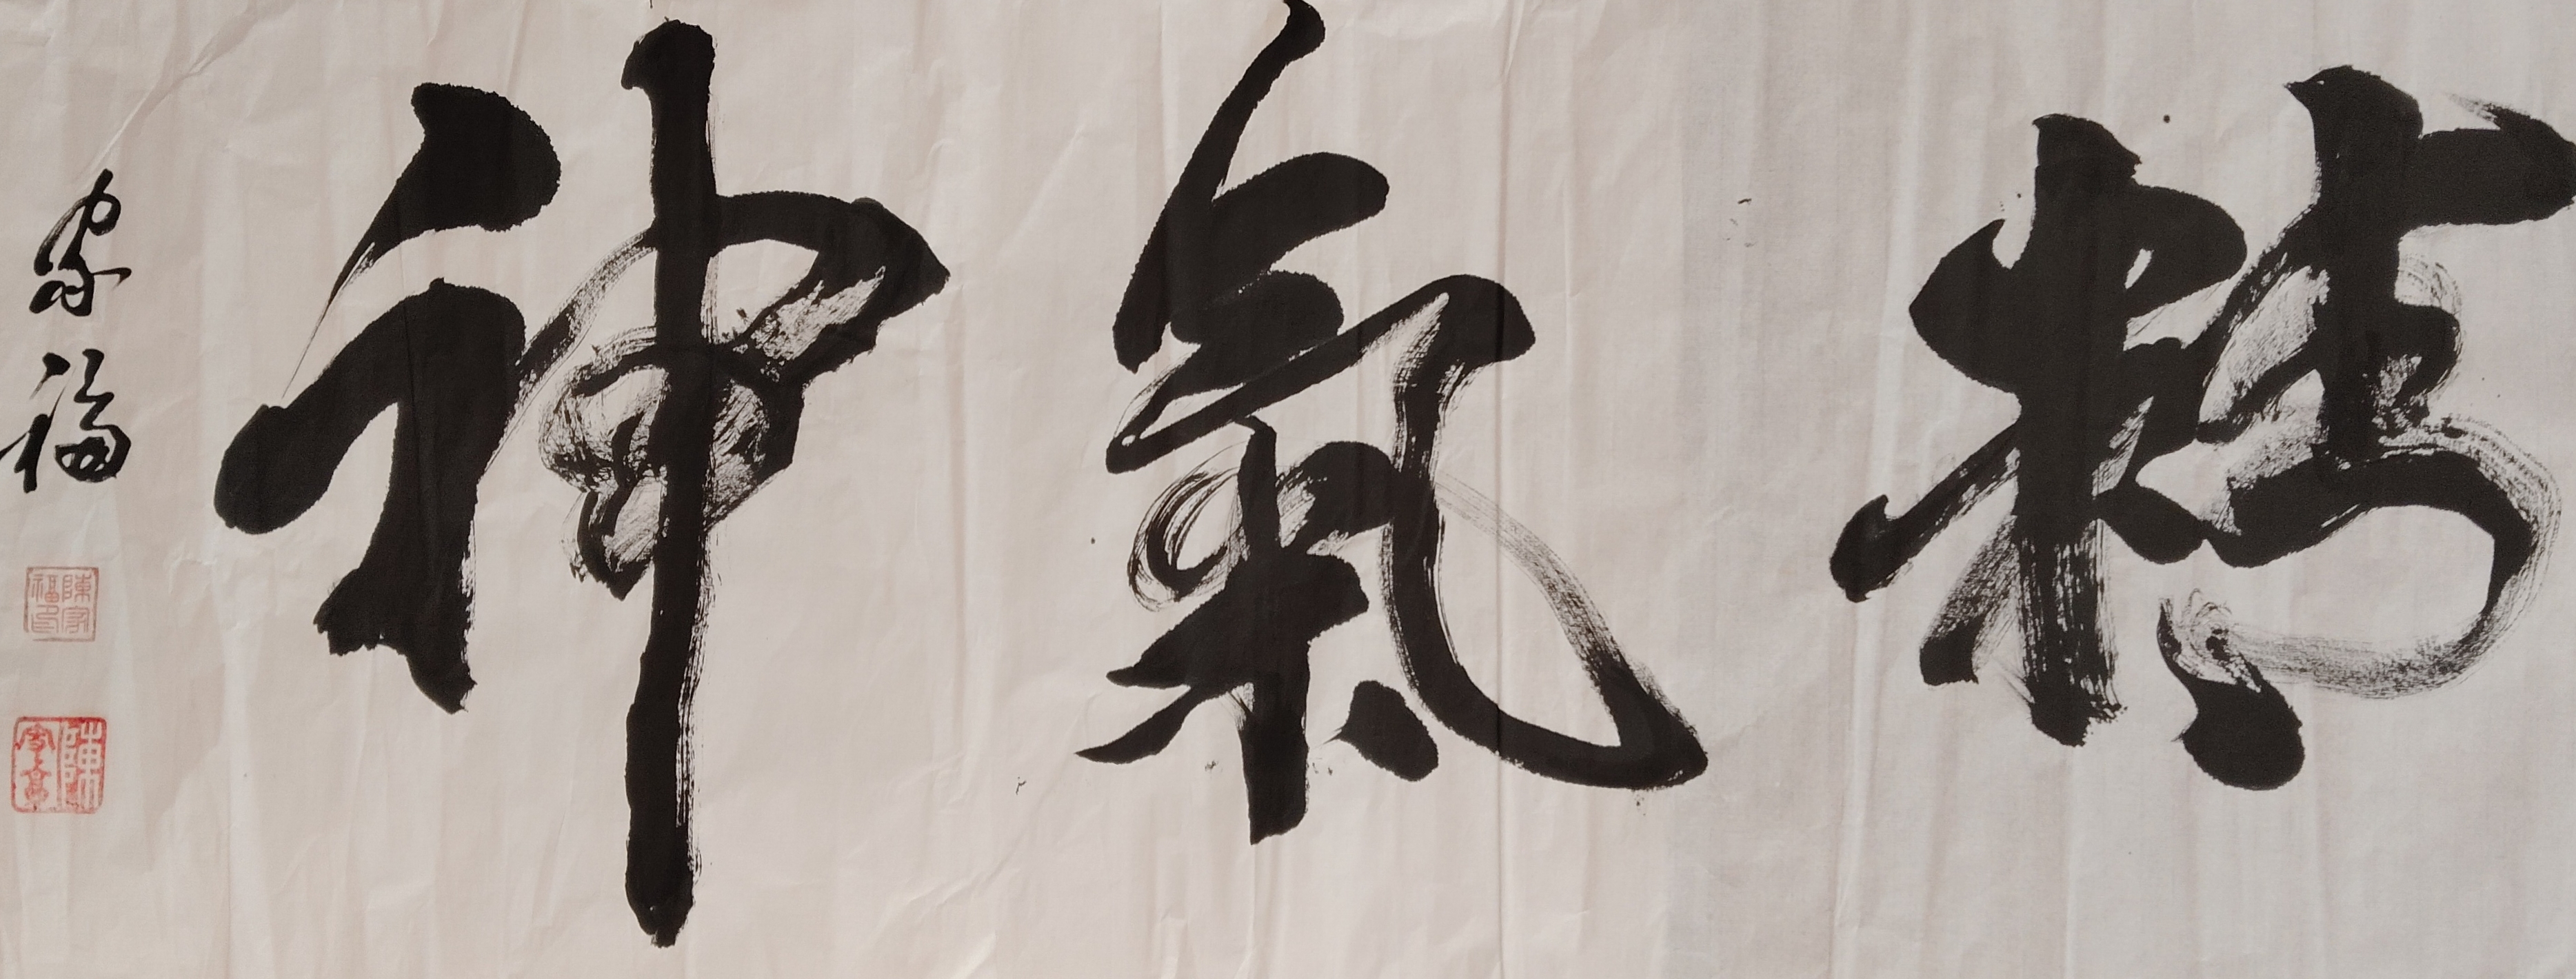 精氣神
家福
陳家福印
陳